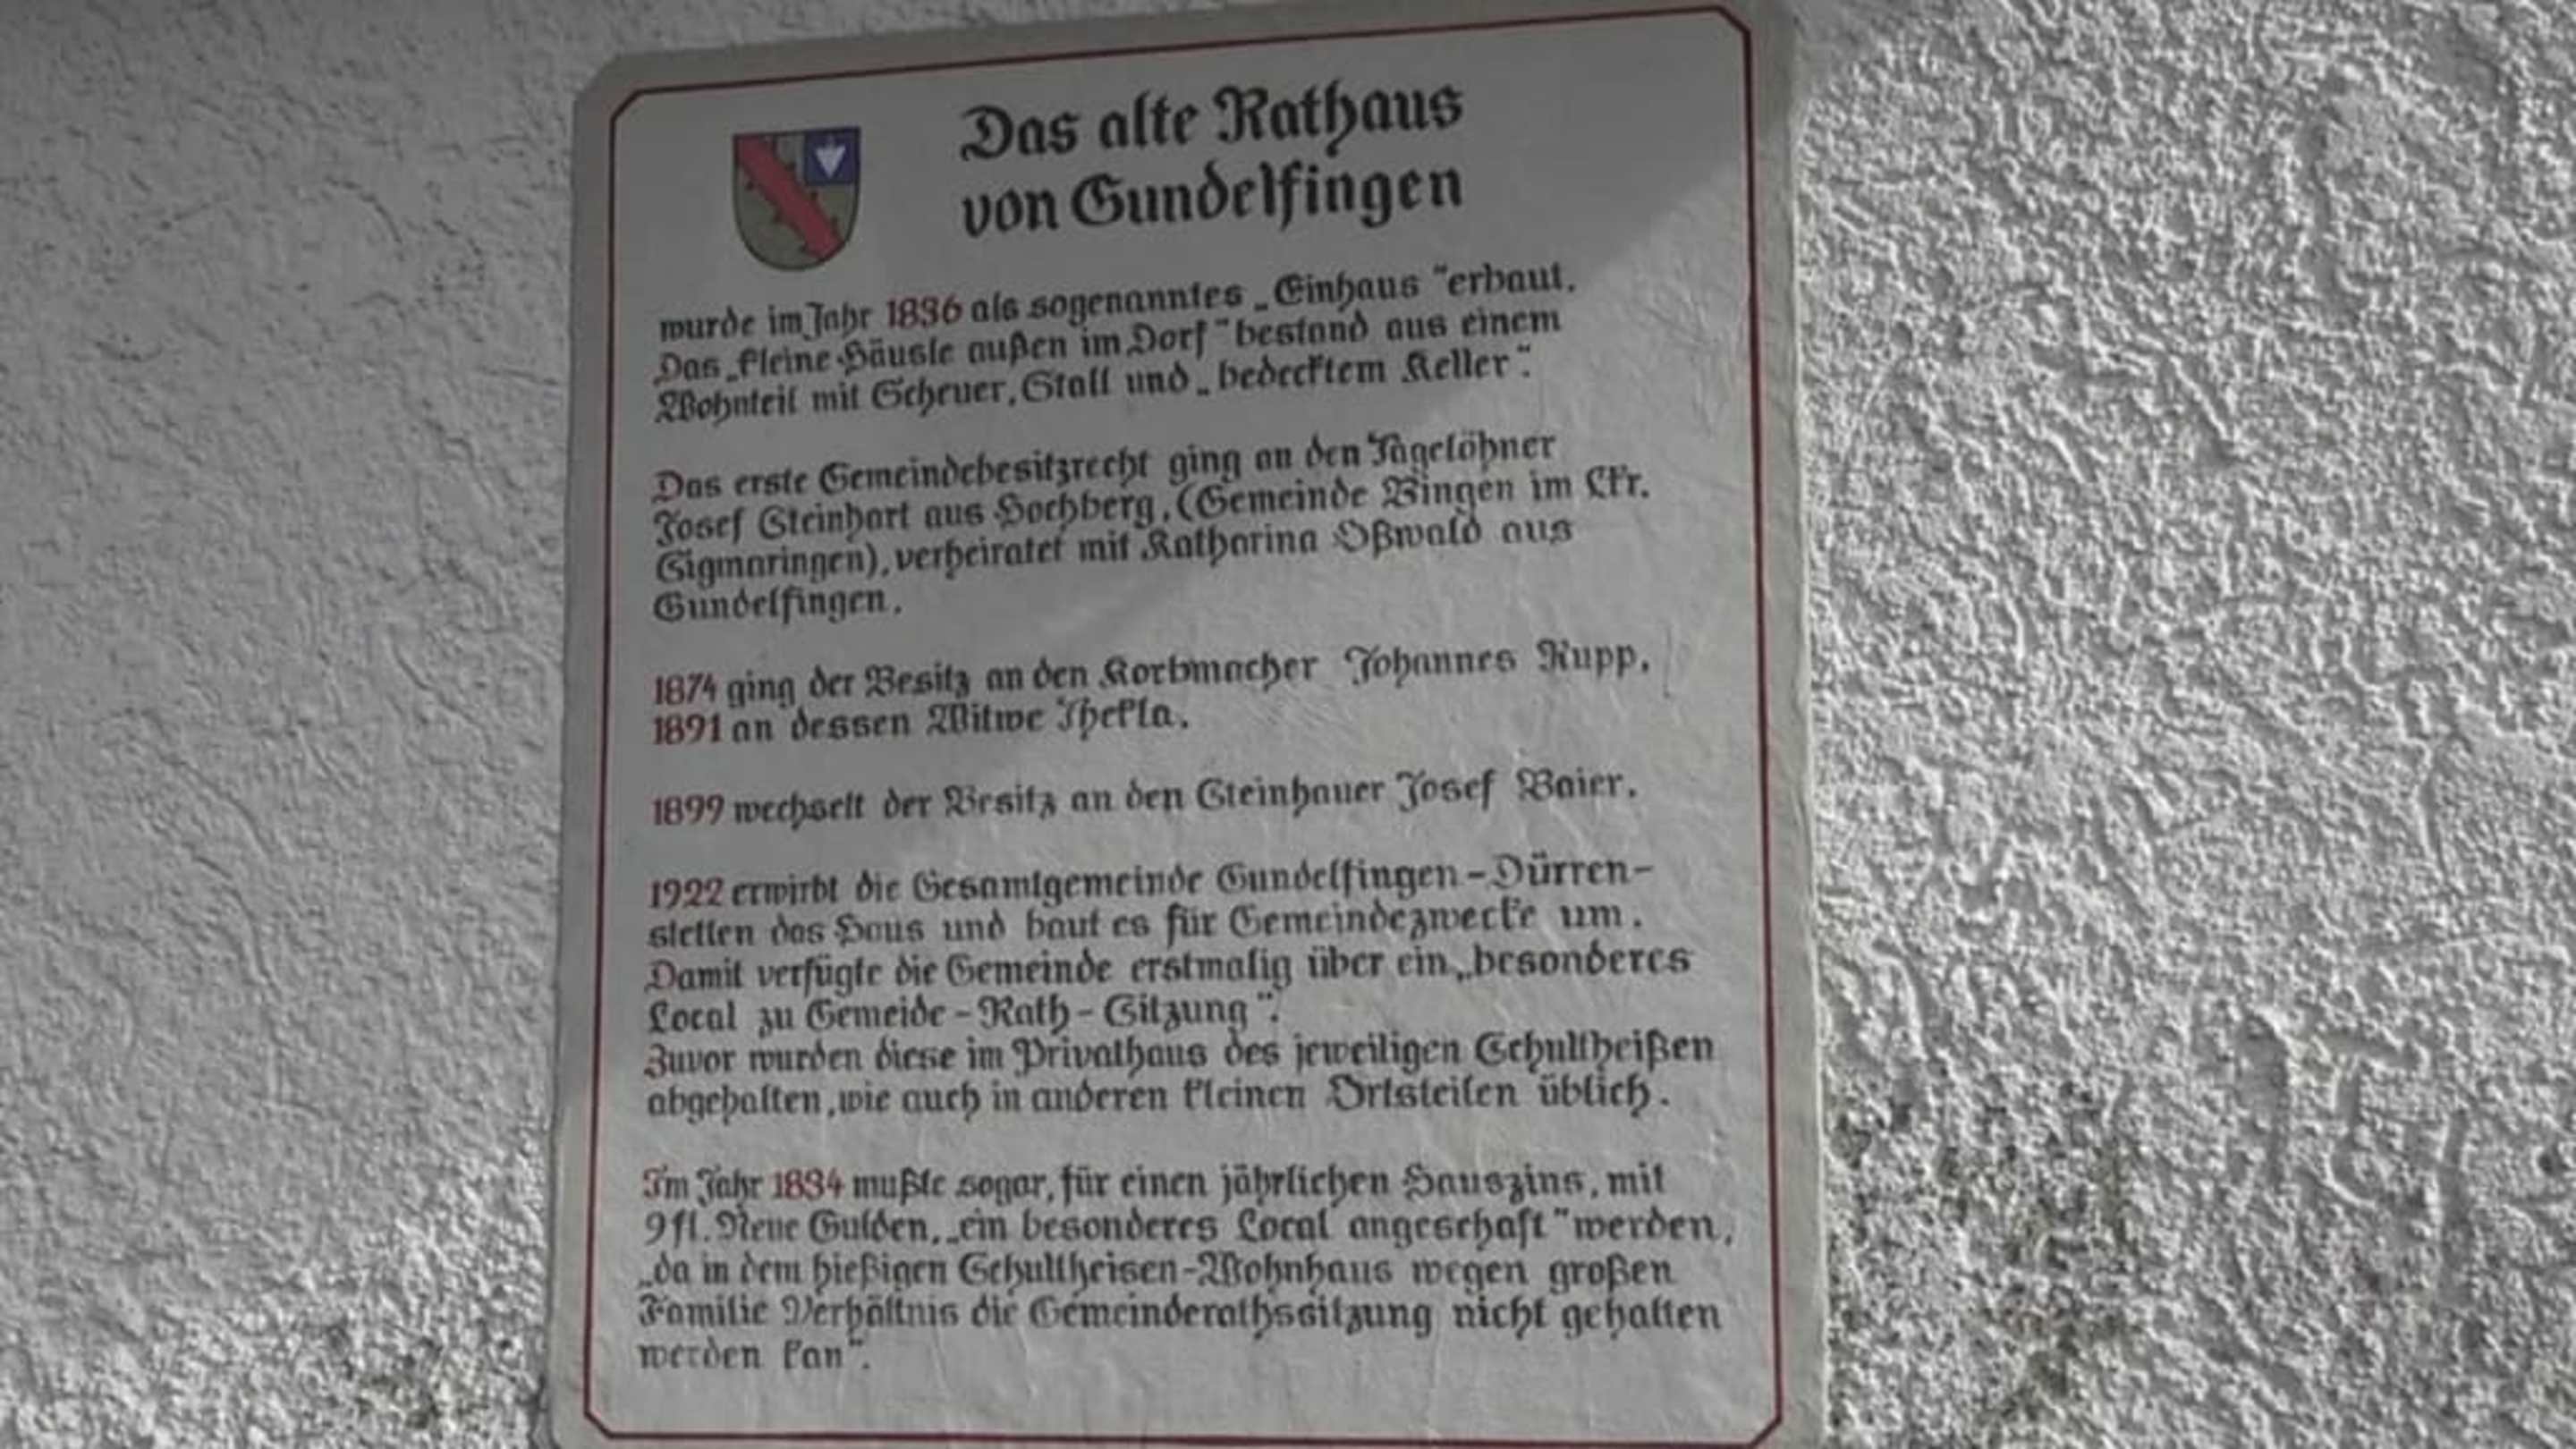 Das alte Rathaus
von Gundelfingen
wurde im Jahr 1836 als sogenanntes „Einhaus“ erbaut.
Das „kleine Häusle außen im Dorf“ bestand aus einem
Wohnteil mit Scheuer, Stall und „bedecktem Keller“.
Das erste Gemeindebesitzrecht ging an den Tagelöhner
Josef Steinhart aus Hochberg, (Gemeinde Bingen im Lkr.
Sigmaringen), verheiratet mit Katharina Oßwald aus
Gundelfingen.
1874 ging der Besitz an den Korbmacher Johannes Rupp,
1891 an dessen Witwe Thekla.
1899 wechselt der Besitz an den Steinhauer Josef Baier.
1922 erwirbt die Gesamtgemeinde Gundelfingen-Dürren-
stetten das Haus und baut es für Gemeindezwecke um.
Damit verfügte die Gemeinde erstmalig über ein „besonderes
Local zu Gemeide-Rath-Sitzung“.
Zuvor wurden diese im Privathaus des jeweiligen Schultheißen
abgehalten, wie auch in anderen kleinen Ortsteilen üblich.
Im Jahr 1834 mußte sogar, für einen jährlichen Hauszins, mit
9 fl. Neue Gulden, „ein besonderes Local angeschaft“ werden,
„da in dem hießigen Schultheisen-Wohnhaus wegen großen
Familie Verhältnis die Gemeinderathssitzung nicht gehalten
werden kan“.